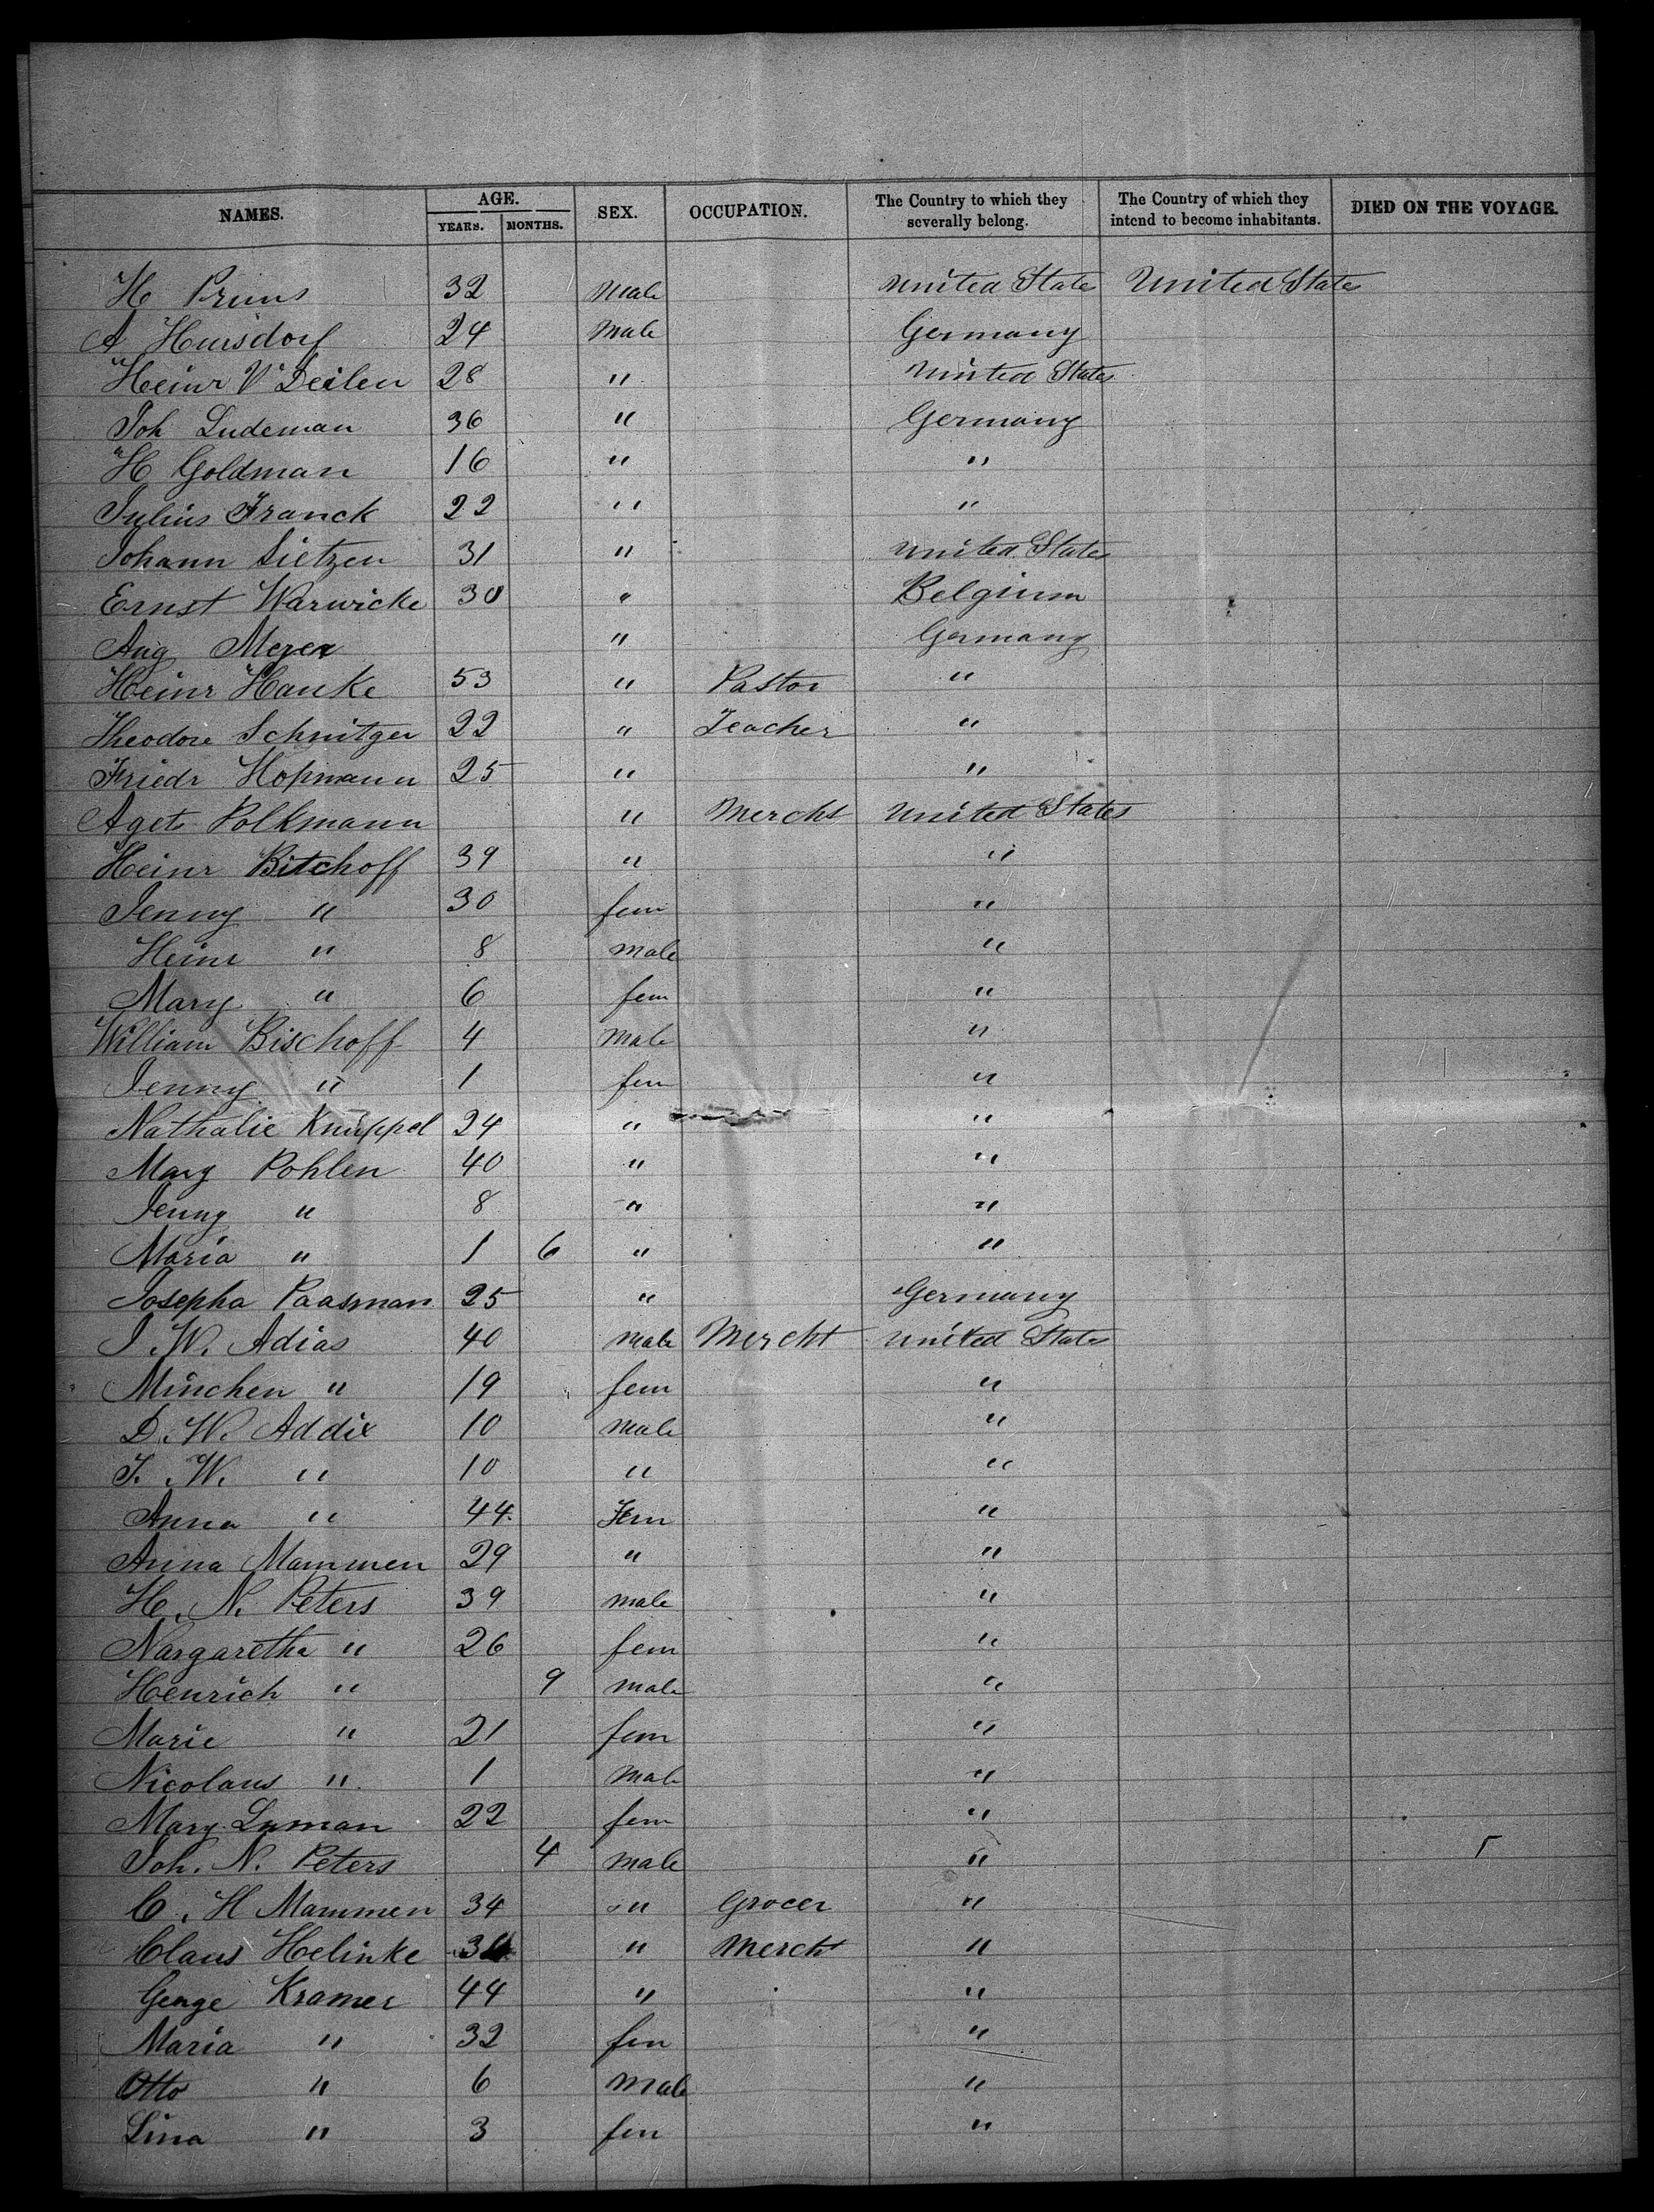 NAMES. AGE. YEARS. MONTHS. SEX. OCCUPATION. The Country to which they severally belong. The Country of which they intend to become inhabitants. DIED ON THE VOYAGE.
H Pruns 32 Male United State United States
A Hersdorf 24 Male Germany
Heinr V Deilen 28 " United States
Joh Ludeman 36 " Germany
H Goldman 16 " "
Julius Franck 22 " "
Johann Sietzen 31 " United States
Ernst Warwicke 30 " Belgium
Aug Meyer " Germany
Heinr Hanke 53 " Pastor "
Theodore Schnitger 22 " Teacher "
Friedr Hopmann 25 " "
Aget Polkmann " Mercht United States
Heinr Bitchoff 39 " "
Jenny " 30 fem "
Heinr " 8 male "
Mary " 6 fem "
William Bischoff 4 Male "
Jenny " 1 fem "
Nathalie Knüppel 24 " "
Mary Pohlen 40 " "
Jenny " 8 " "
Maria " 1 6 " "
Josepha Paasman 25 " Germany
J. W. Adias 40 Male Mercht United States
Minchen " 19 fem "
D. W. Addix 10 Male "
J. W. " 10 " "
Anna " 44 Fem "
Anna Mammen 29 " "
H. N. Peters 39 male "
Nargaretha " 26 fem "
Henrich " 9 male "
Marie " 21 fem "
Nicolaus " 1 Male "
Mary Luman 22 fem "
Joh. N. Peters 4 Male "
C. H Mammen 34 " Grocer "
Claus Helinke " Mercht "
George Kramer 44 " "
Maria " 32 fem "
Otto " 6 Male "
Lina " 3 fem "